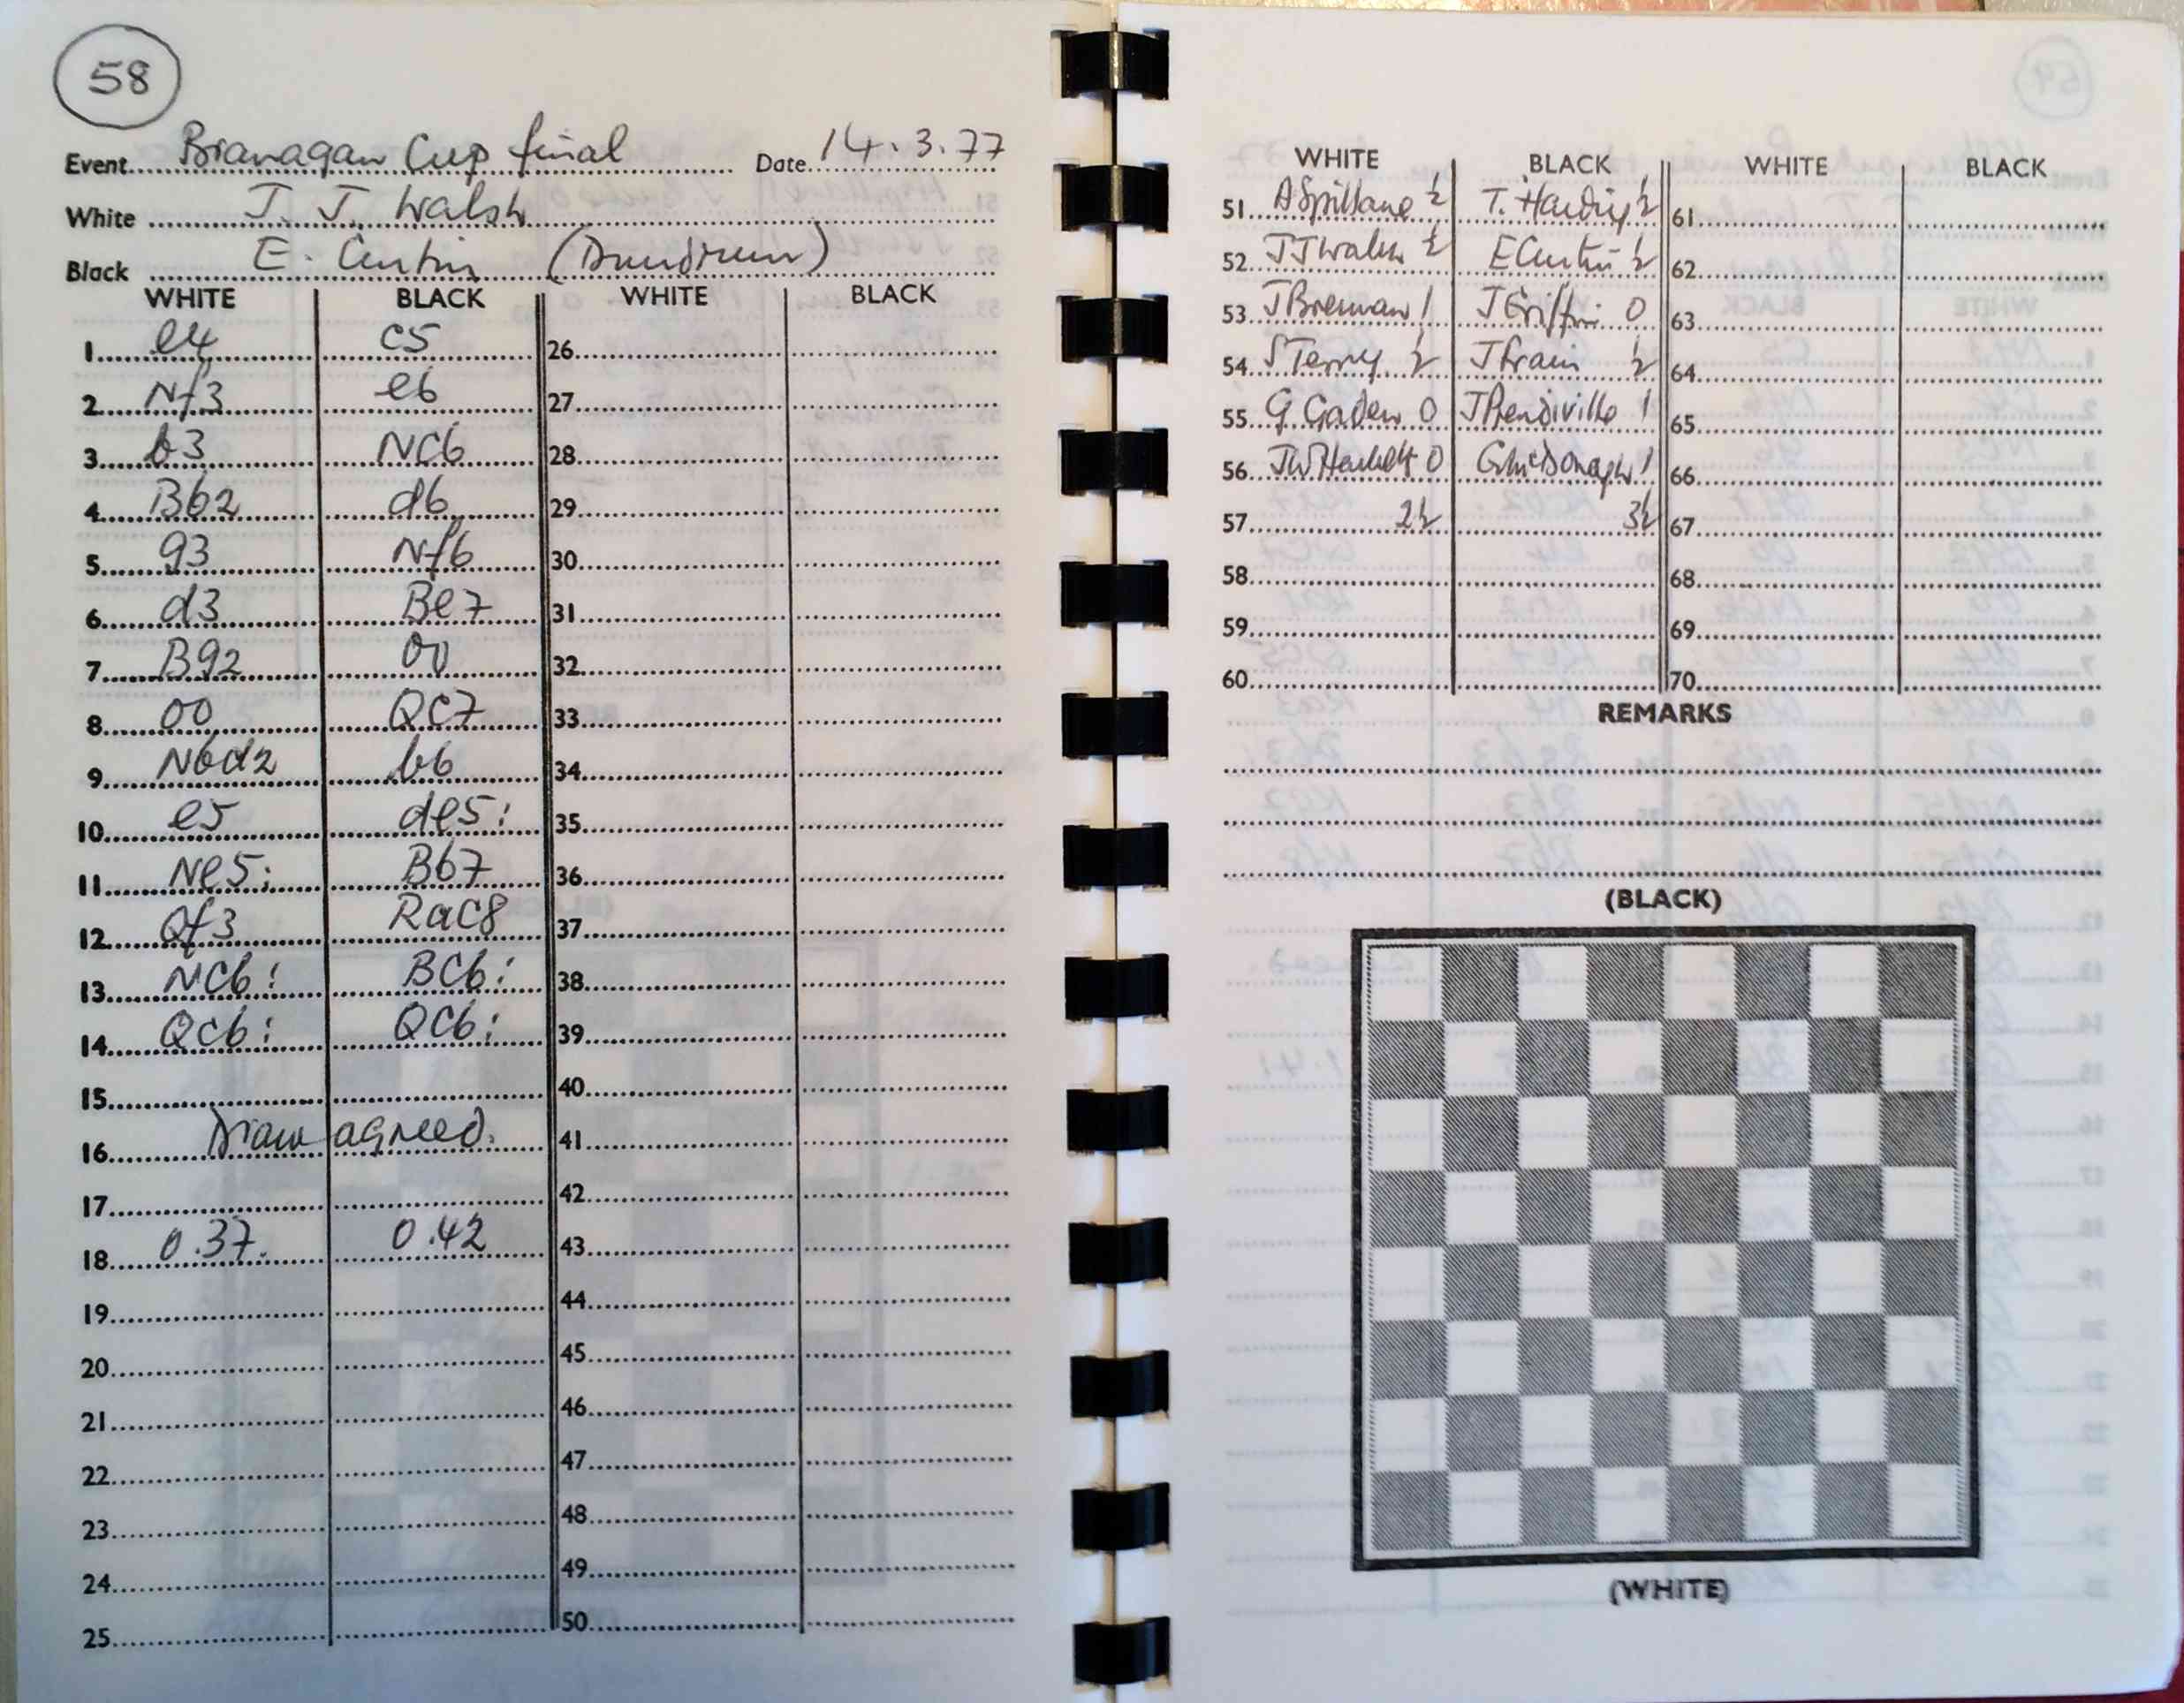 58
Event Branagan Cup final Date 14.3.77
White J. J. Walsh
Black E. Curtin (Dundrum)
WHITE BLACK WHITE BLACK
1 e4 c5 26
2 Nf3 e6 27
3 b3 Nc6 28
4 Bb2 d6 29
5 g3 Nf6 30
6 d3 Be7 31
7 Bg2 00 32
8 00 Qc7 33
9 Nbd2 b6 34
10 e5 de5: 35
11 Ne5: Bb7 36
12 Qf3 Rac8 37
13 Nc6: Bc6: 38
14 Qc6: Qc6: 39
15 40
16 Draw agreed. 41
17 42
18 0.37. 0.42 43
19 44
20 45
21 46
22 47
23 48
24 49
25 50
WHITE BLACK WHITE BLACK
51 A Spillane ½ T. Harding ½ 61
52 J J Walsh ½ E Curtin ½ 62
53 J Brennan 1 J Griffin 0 63
54 S Terry ½ J ½ 64
55 G Gaden 0 J Prendiville 1 65
56 0 G McDonagh 1 66
57 2½ 3½ 67
58 68
59 69
60 70
REMARKS
(BLACK)
(WHITE)